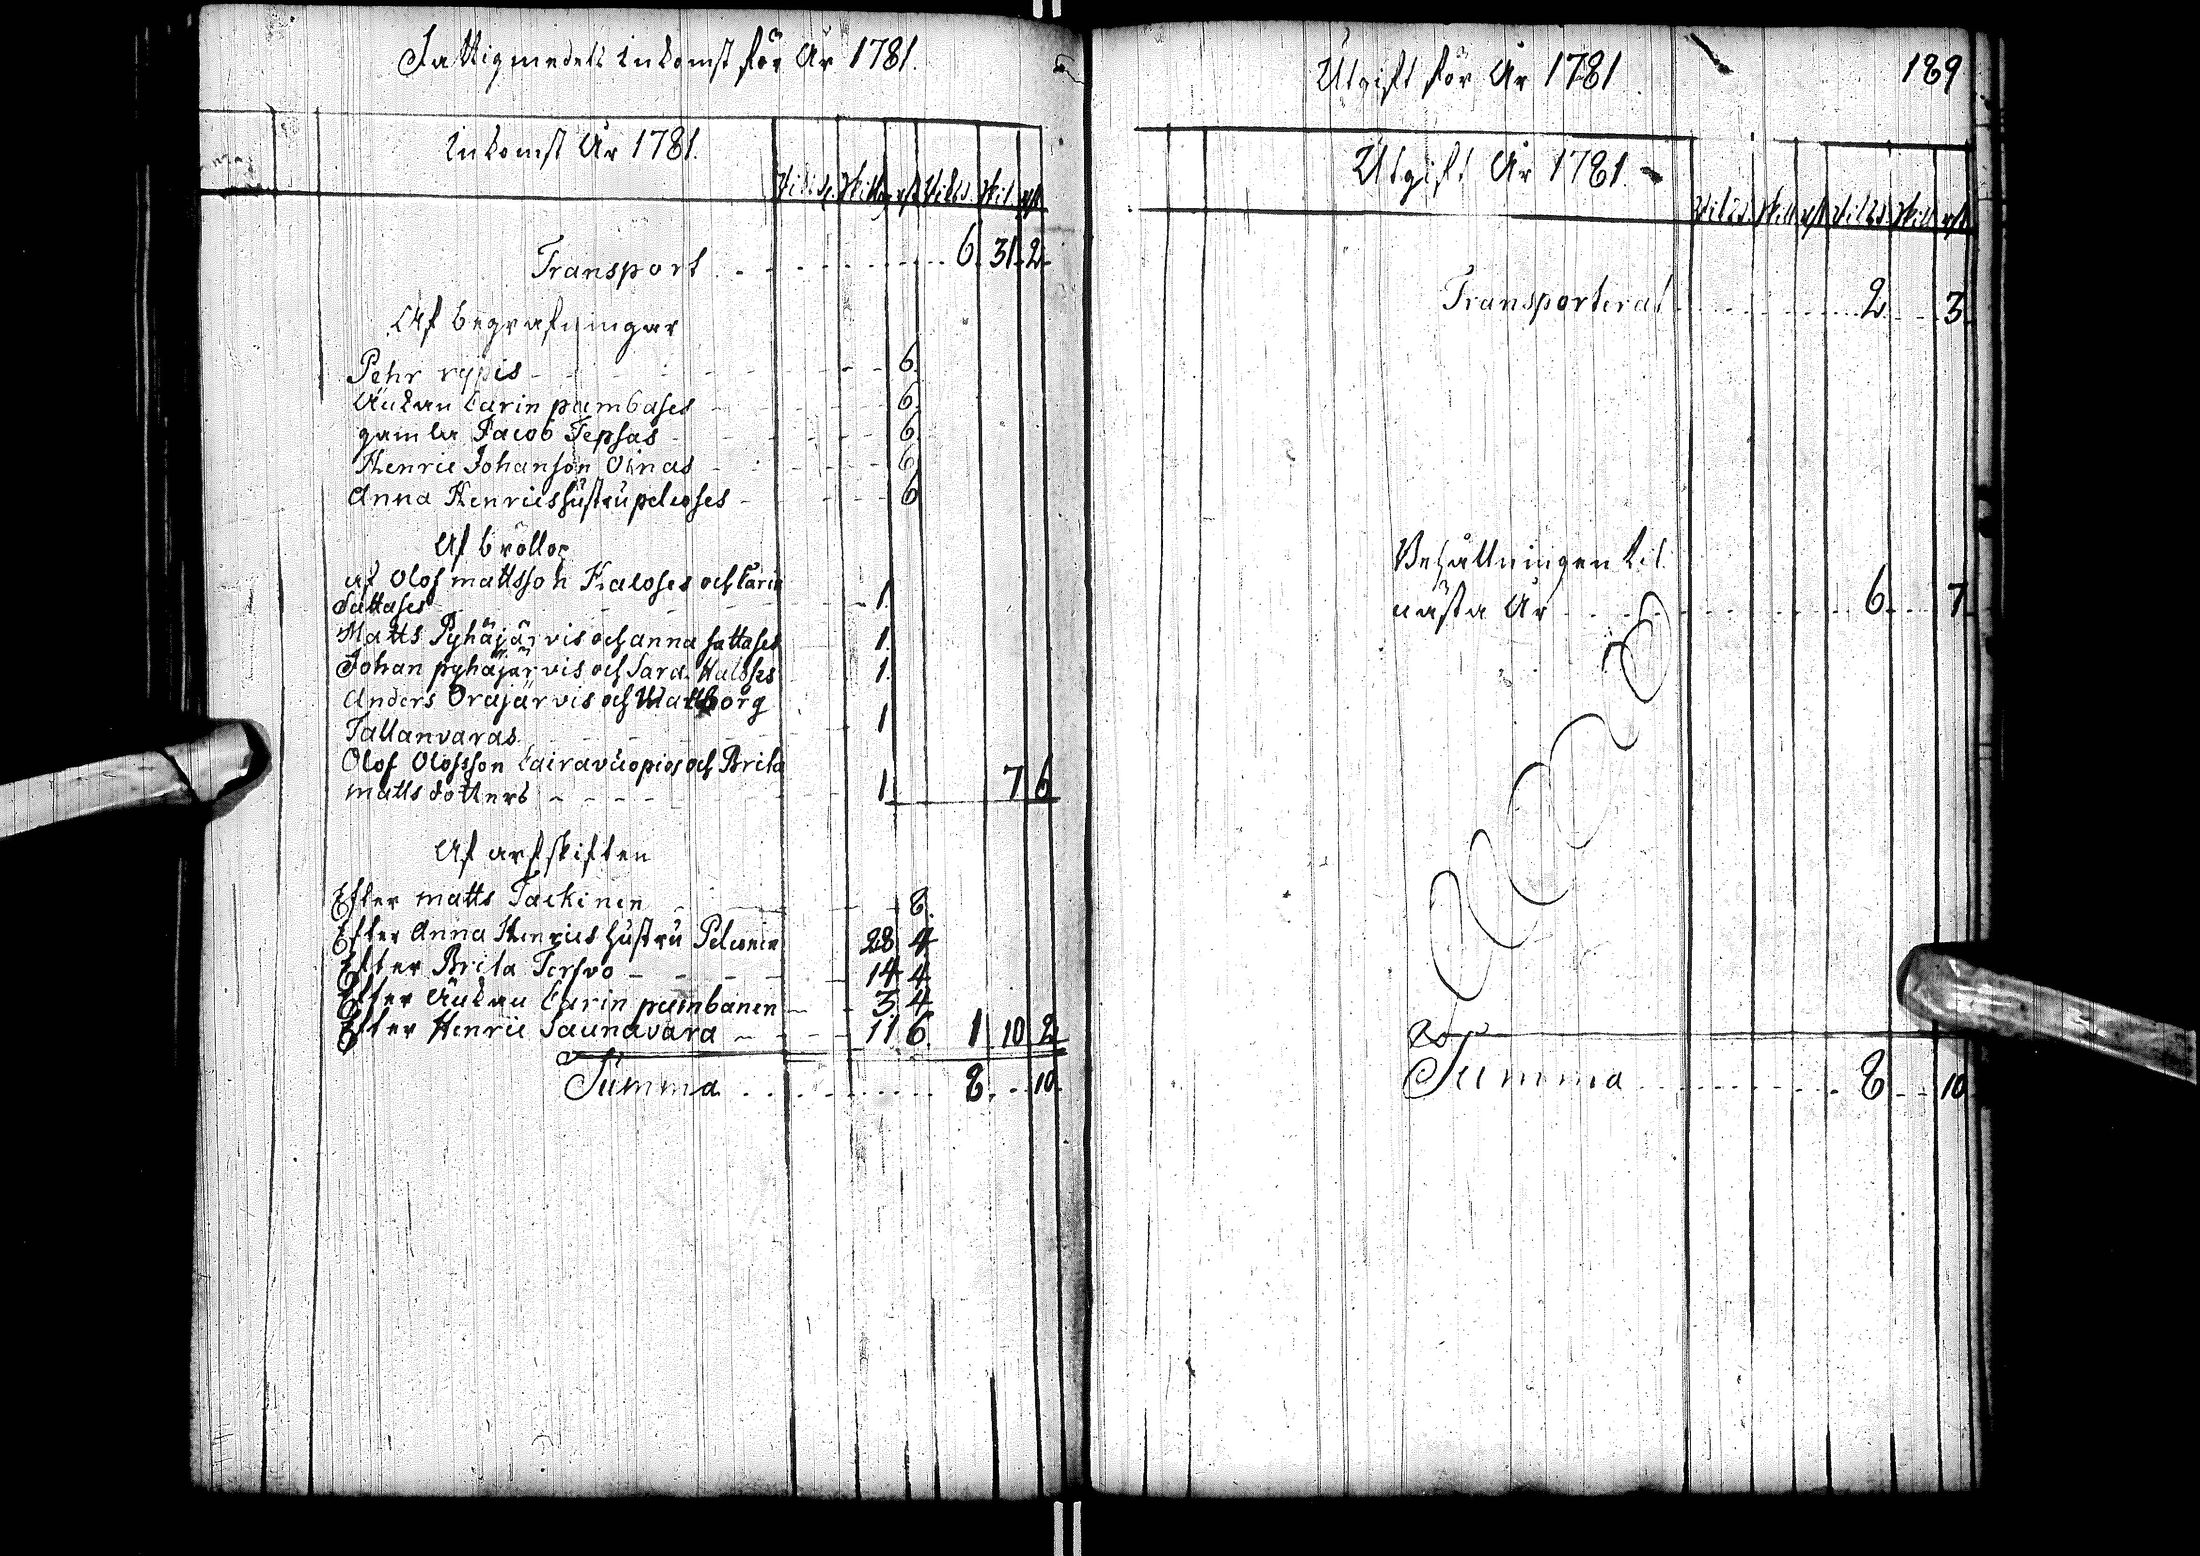 Fattigmedels Inkomst för År 1781.
Inkomst År 1781.
Riksd. Skilling rst Riksd. Skil. rst
Transport 6 31 2
Af begrafningar
Pehr rypis 6
Änkan Carin pumbases 6
gamla Jacob Tepsas 6
Henric Johanson Oinas 6
Anna Henrics hustru pelcoses 6
Af bröllop
af Olof mattsson Kaloses och Carin
Sattases 1
Matts Pyhäjärvis och anna sattases 1
Johan pyhäjärvis och Sara Haloses 1
Anders Orajärvis och Walborg
Tallanvaras 1
Olof Olofsson Cairavuopios och Brita
matts dotters 1 7 6
Af arfskiften
Efter matts Tackinen 8
Efter Anna Henrics hustru Pelconen 28 4
Efter Brita Tersvo 14 4
Efter Änkan Carin pumbanen 3 4
Efter Henric Saunavara 11 6 1 10 2
Summa 8 10
Utgift för År 1781
189
Utgift År 1781.
Riksd Skill rst Riksd Skill rst
Transporterat 2 3
Behållningen til
nästa År 6 7
Summa 8 10